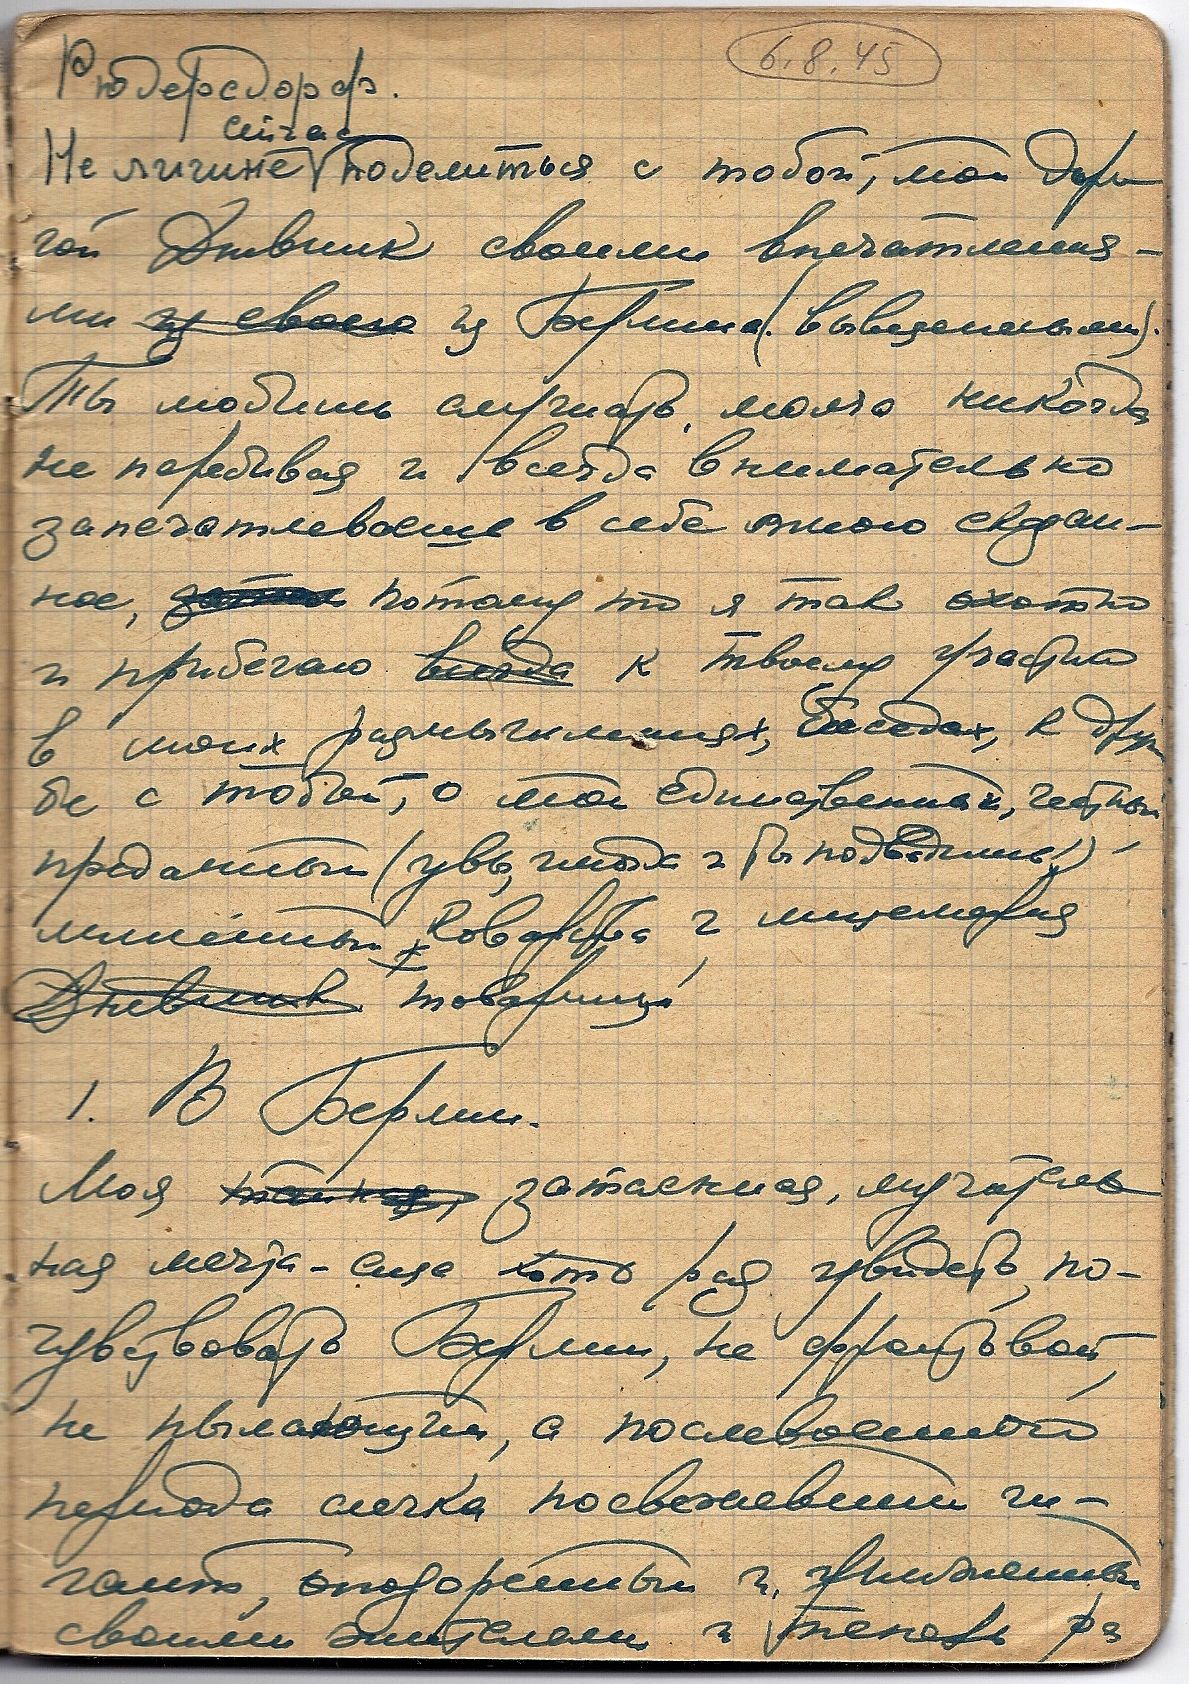 6.8.45
Рюдерсдорф.
сейчас
Не лишне поделиться с тобой, мой доро
гой Дневник своими впечатления-
ми из своего из Берлина (вывезенными).
Ты любишь слушать, молча никогда
не перебивая и всегда внимательно
запечатлеваешь в себе мною сказан-
ное, потому что я так охотно
и прибегаю всегда к твоему участию
в моих размышлениях, беседах, к друж
бе с тобой, о мой единственный, честный
преданный (увы, иногда и ты подводишь!),
лишённый коварства и лицемерия
Дневник товарищ!
1. В Берлин.
Моя тайная, затаенная, мучитель
ная мечта - еще хоть раз увидеть, по-
чувствовать Берлин, не фронтовой,
не пылающий, а послевоенного
периода слегка посвежевший ги-
гант, опозоренный и униженный
своими жителями и теперь ра